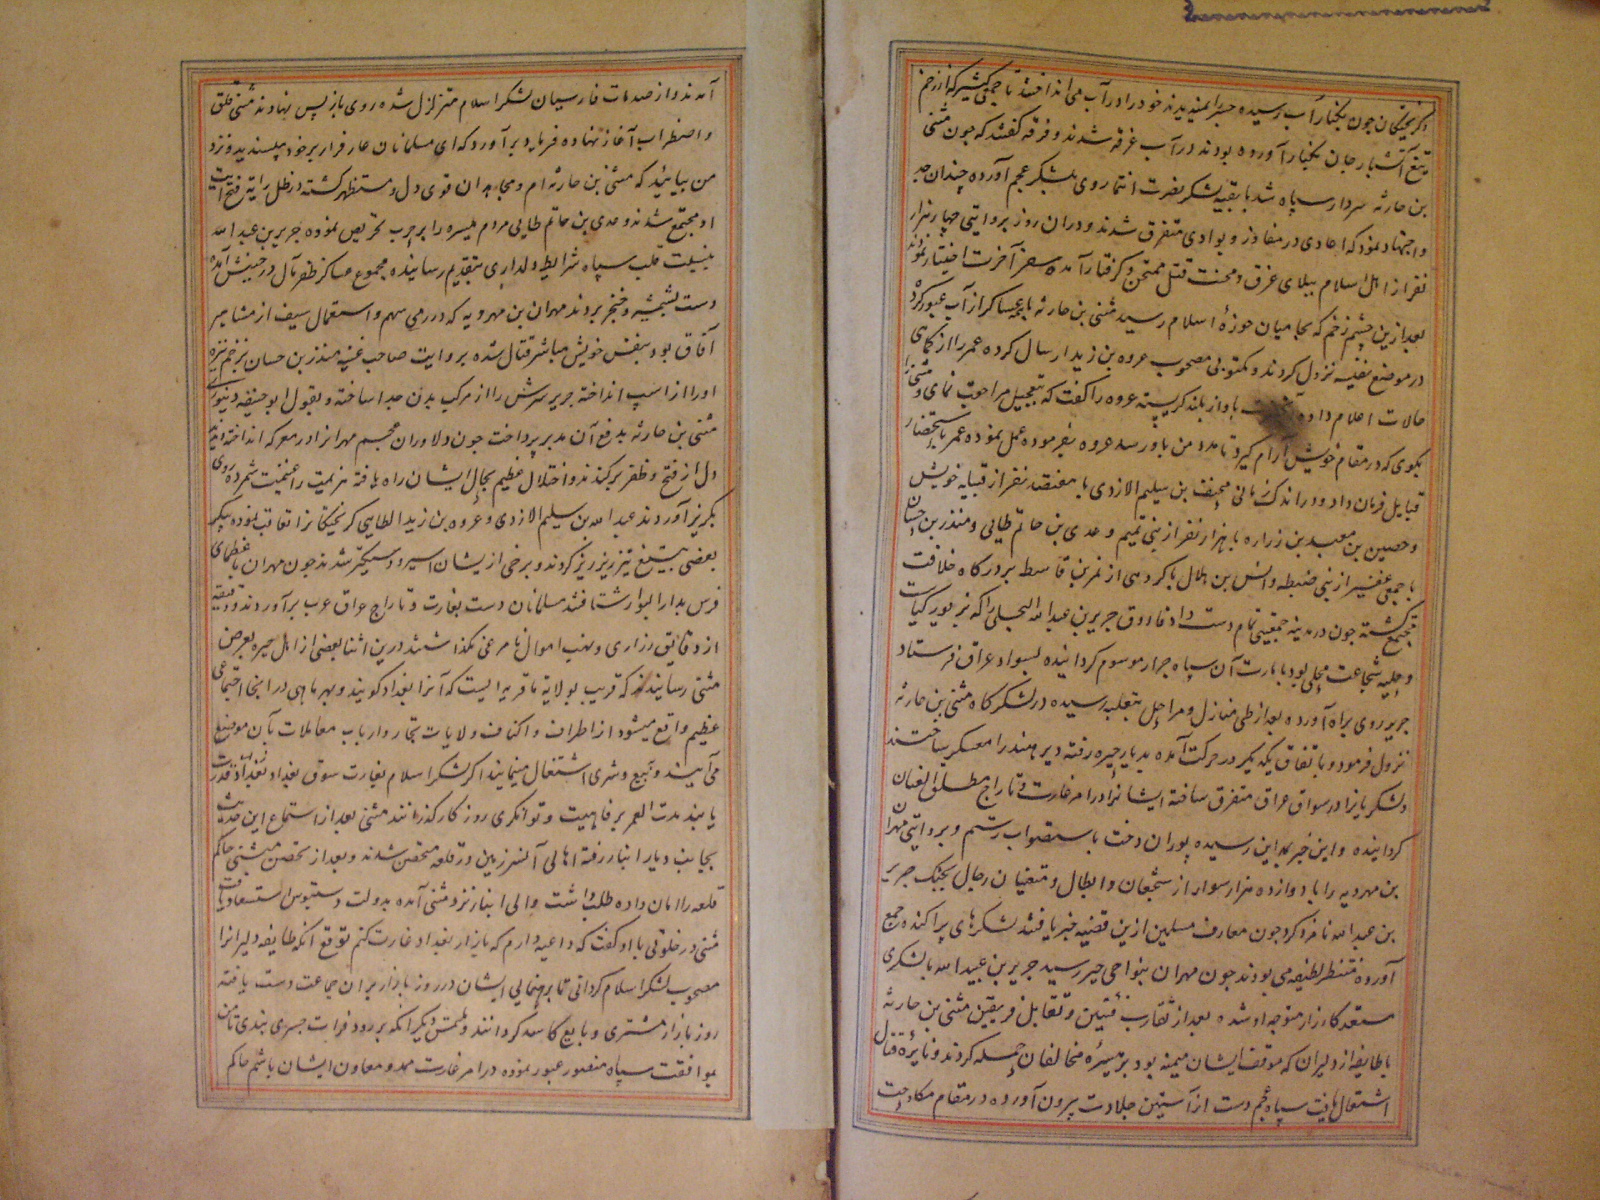 و گریختگان چون بکنار آب رسیده جسر را ندیدند خود را در آب می انداختند تا جمعی کثیر که از زخم
تیغ آتشبار جان بکنار آورده بودند در آب غرقه شدند و فرقه گفتند که چون مثنی
بن حارثه سردار سپاه شد با بقیه لشکر نصرت انتما روی بلشکر عجم آورده چندان جد
و اجتهاد نمود که اعادی در مفاوز و بوادی متفرق شدند و دران روز بروایتی چهار هزار
نفر از اهل اسلام ببلای غرق و محنت قتل ممتحن و گرفتار آمده سفر آخرت اختیار نمودند
بعد ازین چشم زخم که بحامیان حوزهٔ اسلام رسید مثنی بن حارثه با عساکر از آب عبور کرد
در موضع نزول کردند و مکتوبی مصحوب عروه بن زید ارسال کرده عمر را از کمای
حالات اعلام داده باواز بلند گریسته عروه را گفت که بتعجیل مراجعت نمای و مثنی را
بگوی که در مقام خویش آرام گیرد تا مدد من باو رسد عروه بفرموده عمل نموده عمر باستحضار
قبایل فرمان داد و در اندک زمانی مخنف بن سلیم الازدی با هفتصد نفر از قبیله خویش
و حصین بن معبد بن زراره با هزار نفر از بنی تمیم و عدی بن حاتم طایی و منذر بن حسان
با جمعی غفیر از بنی ضبطه و انس بن هلال با گروهی از نمر بن قاسط بدرگاه خلافت
مجتمع گشته چون در مدینه جمعیتی تمام دست داد فاروق جریر بن عبد الله البجلی را که بزیور کیاست
و حلیه شجاعت محلی بود بامارت آن سپاه جرار موسوم گردانیده بسواد عراق فرستاد
جریر روی براه آورده بعد از طی منازل و مراحل بثعلبه رسیده در لشکرگاه مثنی بن حارثه
نزول فرمود و باتفاق یکدیگر در حرکت آمده بدیار حیره رفته دیر هند را معسکر ساختند
و لشکریان را در سواق عراق متفرق ساخته ایشانرا در امر غارت و تاراج مطلق العنان
گردانیده و این خبر بمداین رسیده پوران دخت باستصواب رستم و بروایتی مهران
بن مهرویه را با دوازده هزار سوار از شجعان و ابطال و متعینان رجال بجنگ جریر
بن عبد الله نامزد کرد چون معارف مسلمین ازین قضیه خبر یافتند لشکرهای پراکنده جمع
آورده منتظر لطیفه می بودند چون مهران بنواحی حیره رسید جریر بن عبد الله با لشکری
مستعد کارزار متوجه او شده بعد از تقارب فئتین و تقابل فریقین مثنی بن حارثه
با طایفه از دلیران که موقف ایشان میمنه بود بر میسرهٔ مخالفان حمله کردند و نایرهٔ قتال
اشتعال یافت سپاه عجم دست از آستین جلادت بیرون آورده در مقام مکاوحت
آمدند و از صدمات فارسیان لشکر اسلام متزلزل شده روی بازپس نهادند مثنی قلق
و اضطراب آغاز نهاده فریاد برآورد که ای مسلمانان عار فرار بر خود مپسندید و نزد
من بیائید که مثنی بن حارثه ام و مجاهدان قوی دل و مستظهر گشته در ظل رایت فتح آیت
او مجتمع شدند و عدی بن حاتم طایی مردم میسره را بر حرب تحریص نموده جریر بن عبد الله
بنسبت قلب سپاه شرایط دلداری بتقدیم رسانیده مجموع عساکر ظفر مآل در جنبش آمده
دست بشمشیر و خنجر بردند مهران بن مهرویه که در رمی سهم و استعمال سیف از مشاهیر
آفاق بود بنفس خویش مباشر قتال شده بروایت صاحب غنیه منذر بن حسان بزخم نیزه
او را از اسب انداخته جریر سرش را از مرکب بدن جدا ساخته و بقول ابو حنیفه دینوری
مثنی بن حارثه بدفع آن مدبر پرداخت چون دلاوران عجم مهرانرا در معرکه انداخته دیدند
دل از فتح و ظفر برکندند و اختلال عظیم بحال ایشان راه یافته هزیمت را غنیمت شمرده روی
بگریز آوردند عبد الله بن سلیم الازدی و عروه بن زید الطایی گریختگانرا تعاقب نموده
بعضی بتیغ تیز ریز ریز کردند و برخی از ایشان اسیر و دستگیر شدند چون مهران با عظمای
فرس بدار البوار شتافتند مسلمانان دست بغارت و تاراج عراق عرب برآوردند و دقیقه
از دقایق و نهب اموال نامرعی نگذاشتند درین اثنا بعضی از اهل حیره بعرض
مثنی رسانیدند که قریب بولایه ما قریه ایست که آنرا بغداد گویند و بهر ماهی در انجا اجتماعی
عظیم واقع میشود از اطراف و اکناف ولایات تجار و ارباب معاملات بآن موضع
می آیند و ببیع و شری اشتغال مینمایند اگر لشکر اسلام بغارت سوق بغداد قدرت
یابند مدت العمر برفاهیت و توانگری روزگار گذرانند مثنی بعد از استماع این حدیث
بجانب دیار انبار رفته اهالی آنسرزمین در قلعه متحصن شدند و بعد از تحصن مثنی حاکم
قلعه را امان داده طلب داشت والی انبار نزد مثنی آمده بدولت دستبوس استسعاد یافت
مثنی در خلوتی با او گفت که داعیه دارم که بازار بغداد غارت کنم توقع آنکه طایفه دلیرانرا
مصحوب لشکر اسلام گردانی تا براهنمایی ایشان در روز بازار بران جماعت دست یافته
روز بازار مشتری و بایع کاسد گردانند و ملتمس دیگر انکه بر رود فرات جسری بندی تا من
بموافقت سپاه منصور عبور نموده در امر غارت ممد و معاون ایشان باشم حاکم